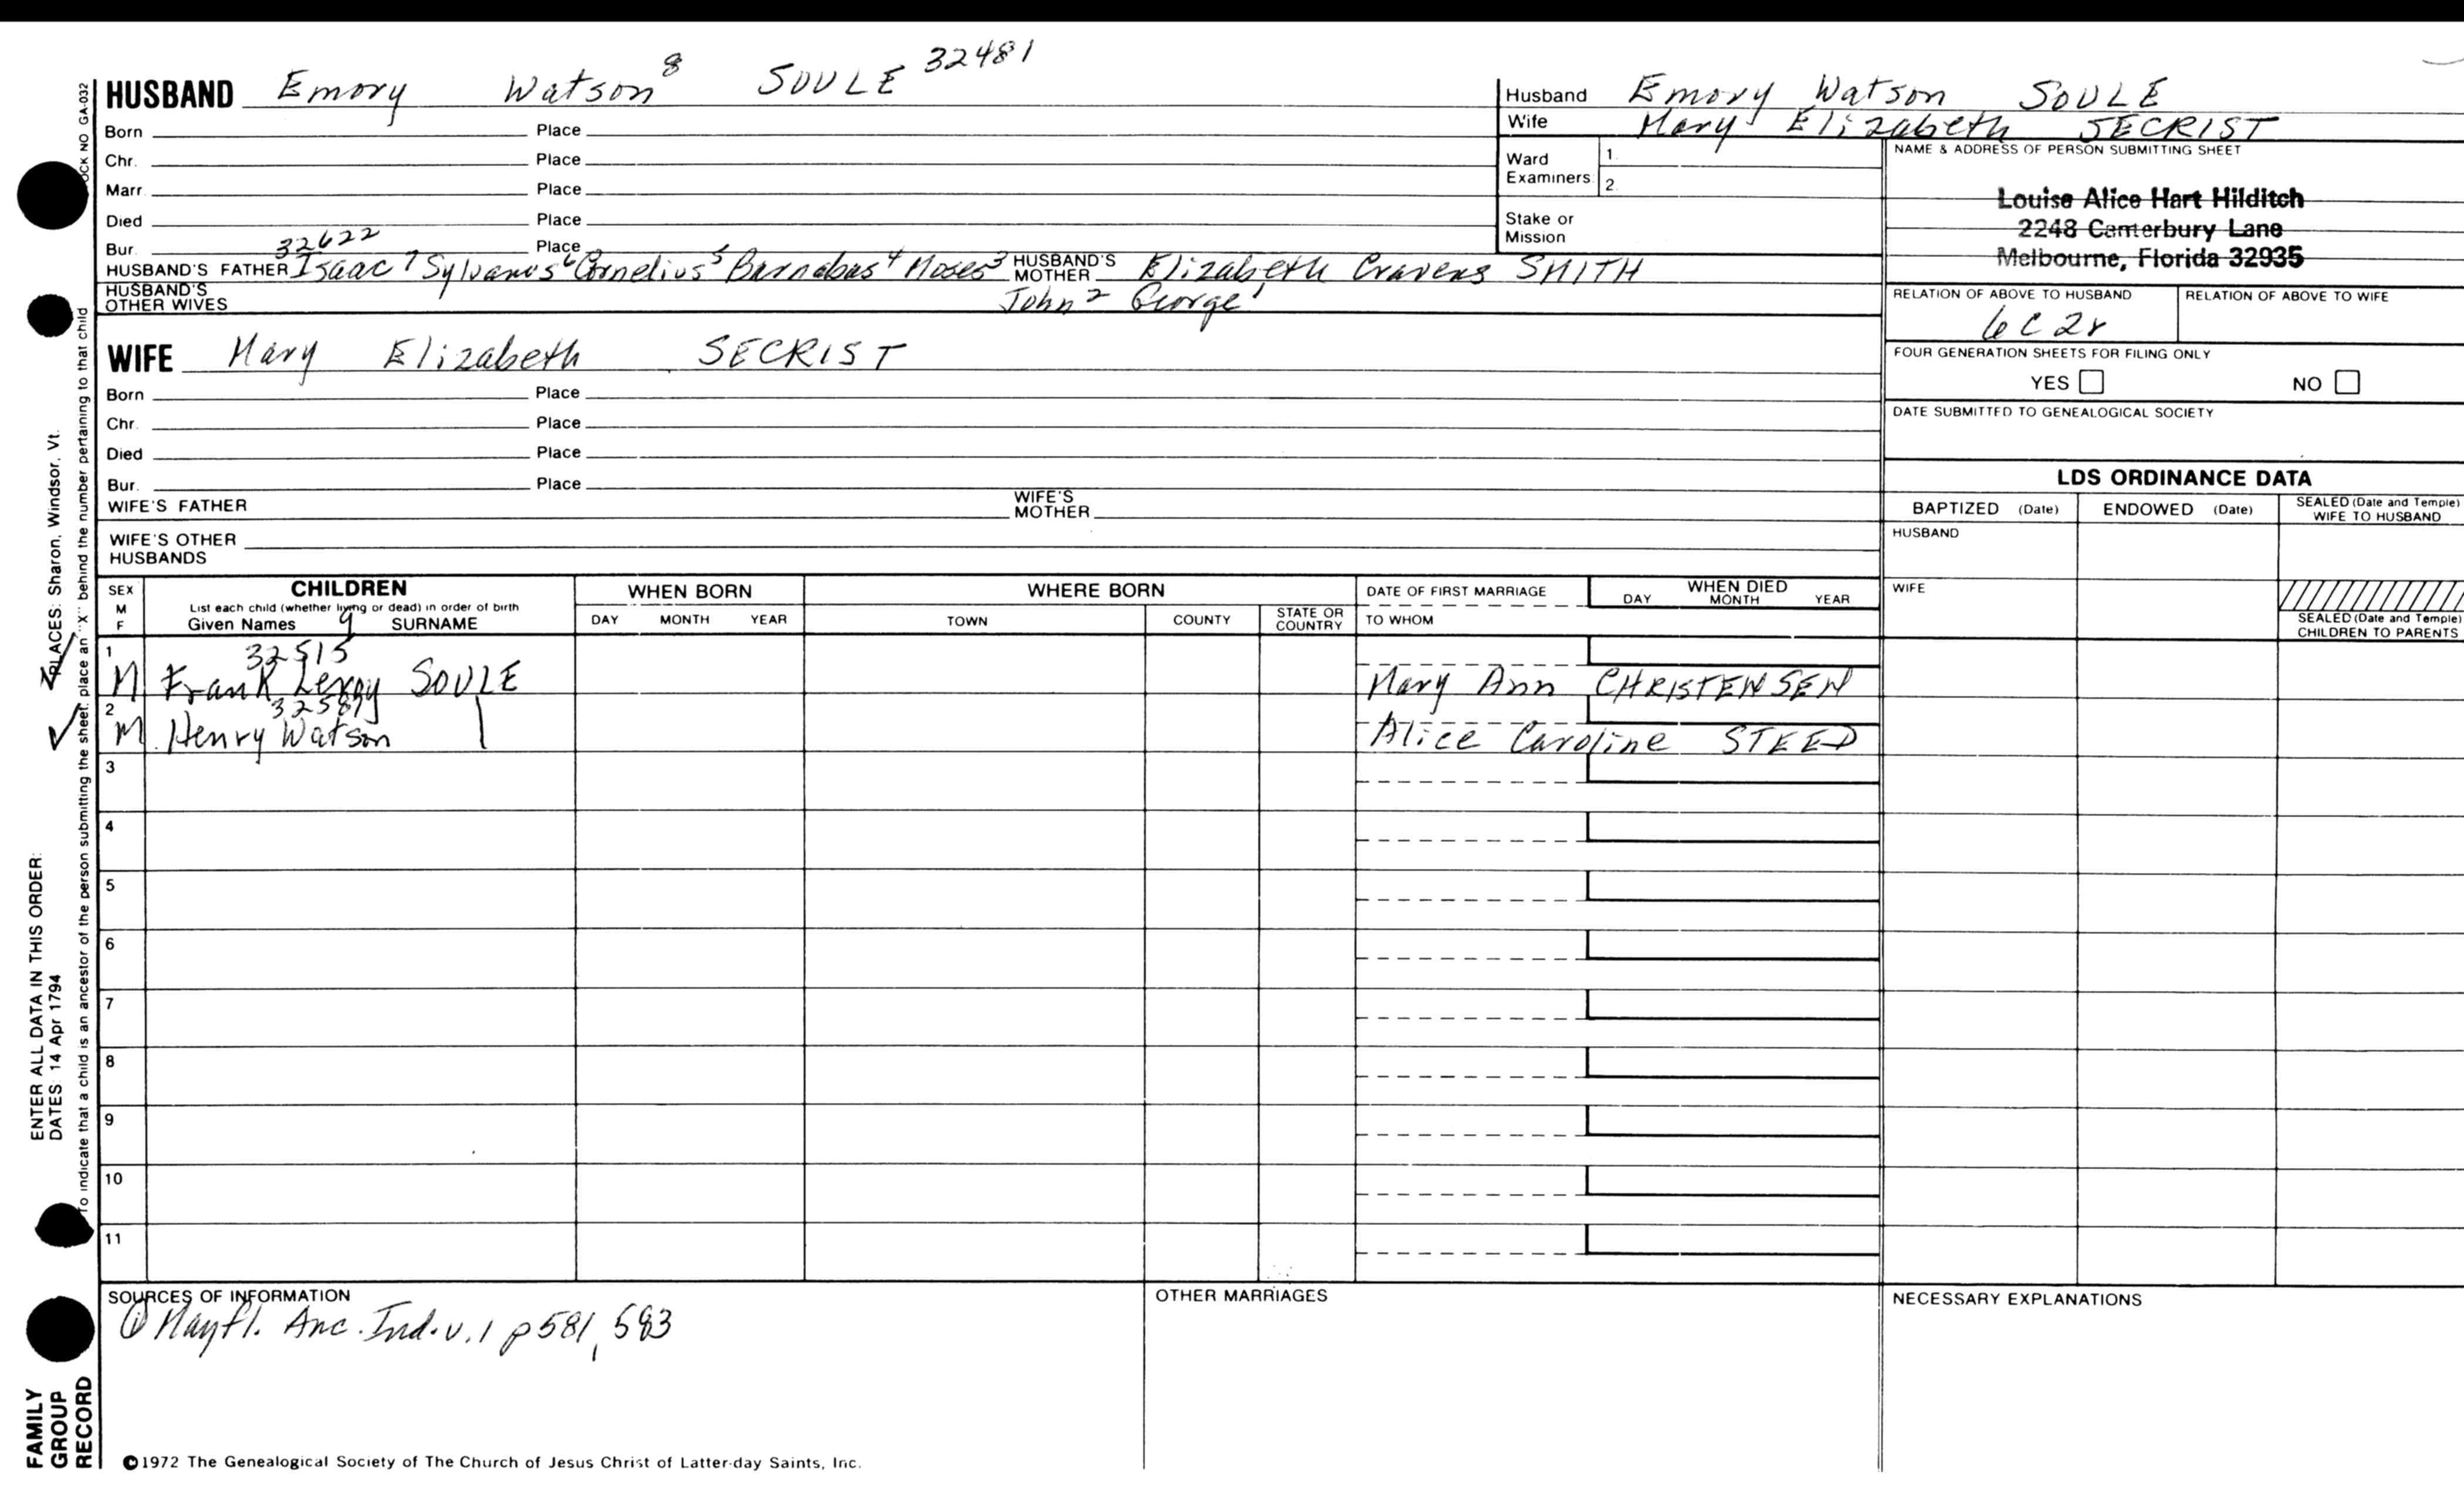 HUSBAND Emory Watson⁸ SOULE 32481
Born Place
Chr. Place
Marr. Place
Died Place
Bur. 32622 Place
HUSBAND'S FATHER Isaac⁷ Sylvanus⁶ Cornelius⁵ Barnabas⁴ Moses³ HUSBAND'S MOTHER Elizabeth Cravens SMITH
HUSBAND'S OTHER WIVES John² George¹
Husband Emory Watson SOULE
Wife Mary Elizabeth SECRIST
Ward Examiners 1.
2.
Stake or Mission
NAME & ADDRESS OF PERSON SUBMITTING SHEET
Louise Alice Hart Hilditch
2248 Canterbury Lane
Melbourne, Florida 32935
RELATION OF ABOVE TO HUSBAND RELATION OF ABOVE TO WIFE
6C2r
FOUR GENERATION SHEETS FOR FILING ONLY
YES NO
DATE SUBMITTED TO GENEALOGICAL SOCIETY
WIFE Mary Elizabeth SECRIST
Born Place
Chr. Place
Died Place
Bur. Place
WIFE'S FATHER WIFE'S MOTHER
WIFE'S OTHER HUSBANDS
LDS ORDINANCE DATA
BAPTIZED (Date) ENDOWED (Date) SEALED (Date and Temple) WIFE TO HUSBAND
HUSBAND
WIFE
SEALED (Date and Temple) CHILDREN TO PARENTS
SEX M F
CHILDREN
List each child (whether living or dead) in order of birth
Given Names 9 SURNAME
WHEN BORN
DAY MONTH YEAR
WHERE BORN
TOWN COUNTY STATE OR COUNTRY
DATE OF FIRST MARRIAGE
TO WHOM
WHEN DIED
DAY MONTH YEAR
1 32515
M Frank Leroy SOULE Mary Ann CHRISTENSEN
2
M. Henry Watson | Alice Caroline STEED
3
4
5
6
7
8
9
10
11
SOURCES OF INFORMATION
① Mayfl. Anc. Ind. v. 1 p 581, 583
OTHER MARRIAGES
NECESSARY EXPLANATIONS
©1972 The Genealogical Society of The Church of Jesus Christ of Latter-day Saints, Inc.
FAMILY GROUP RECORD
ENTER ALL DATA IN THIS ORDER:
DATES: 14 Apr 1794
PLACES: Sharon, Windsor, Vt.
To indicate that a child is an ancestor of the person submitting the sheet, place an "X" behind the number pertaining to that child
NO GA-032